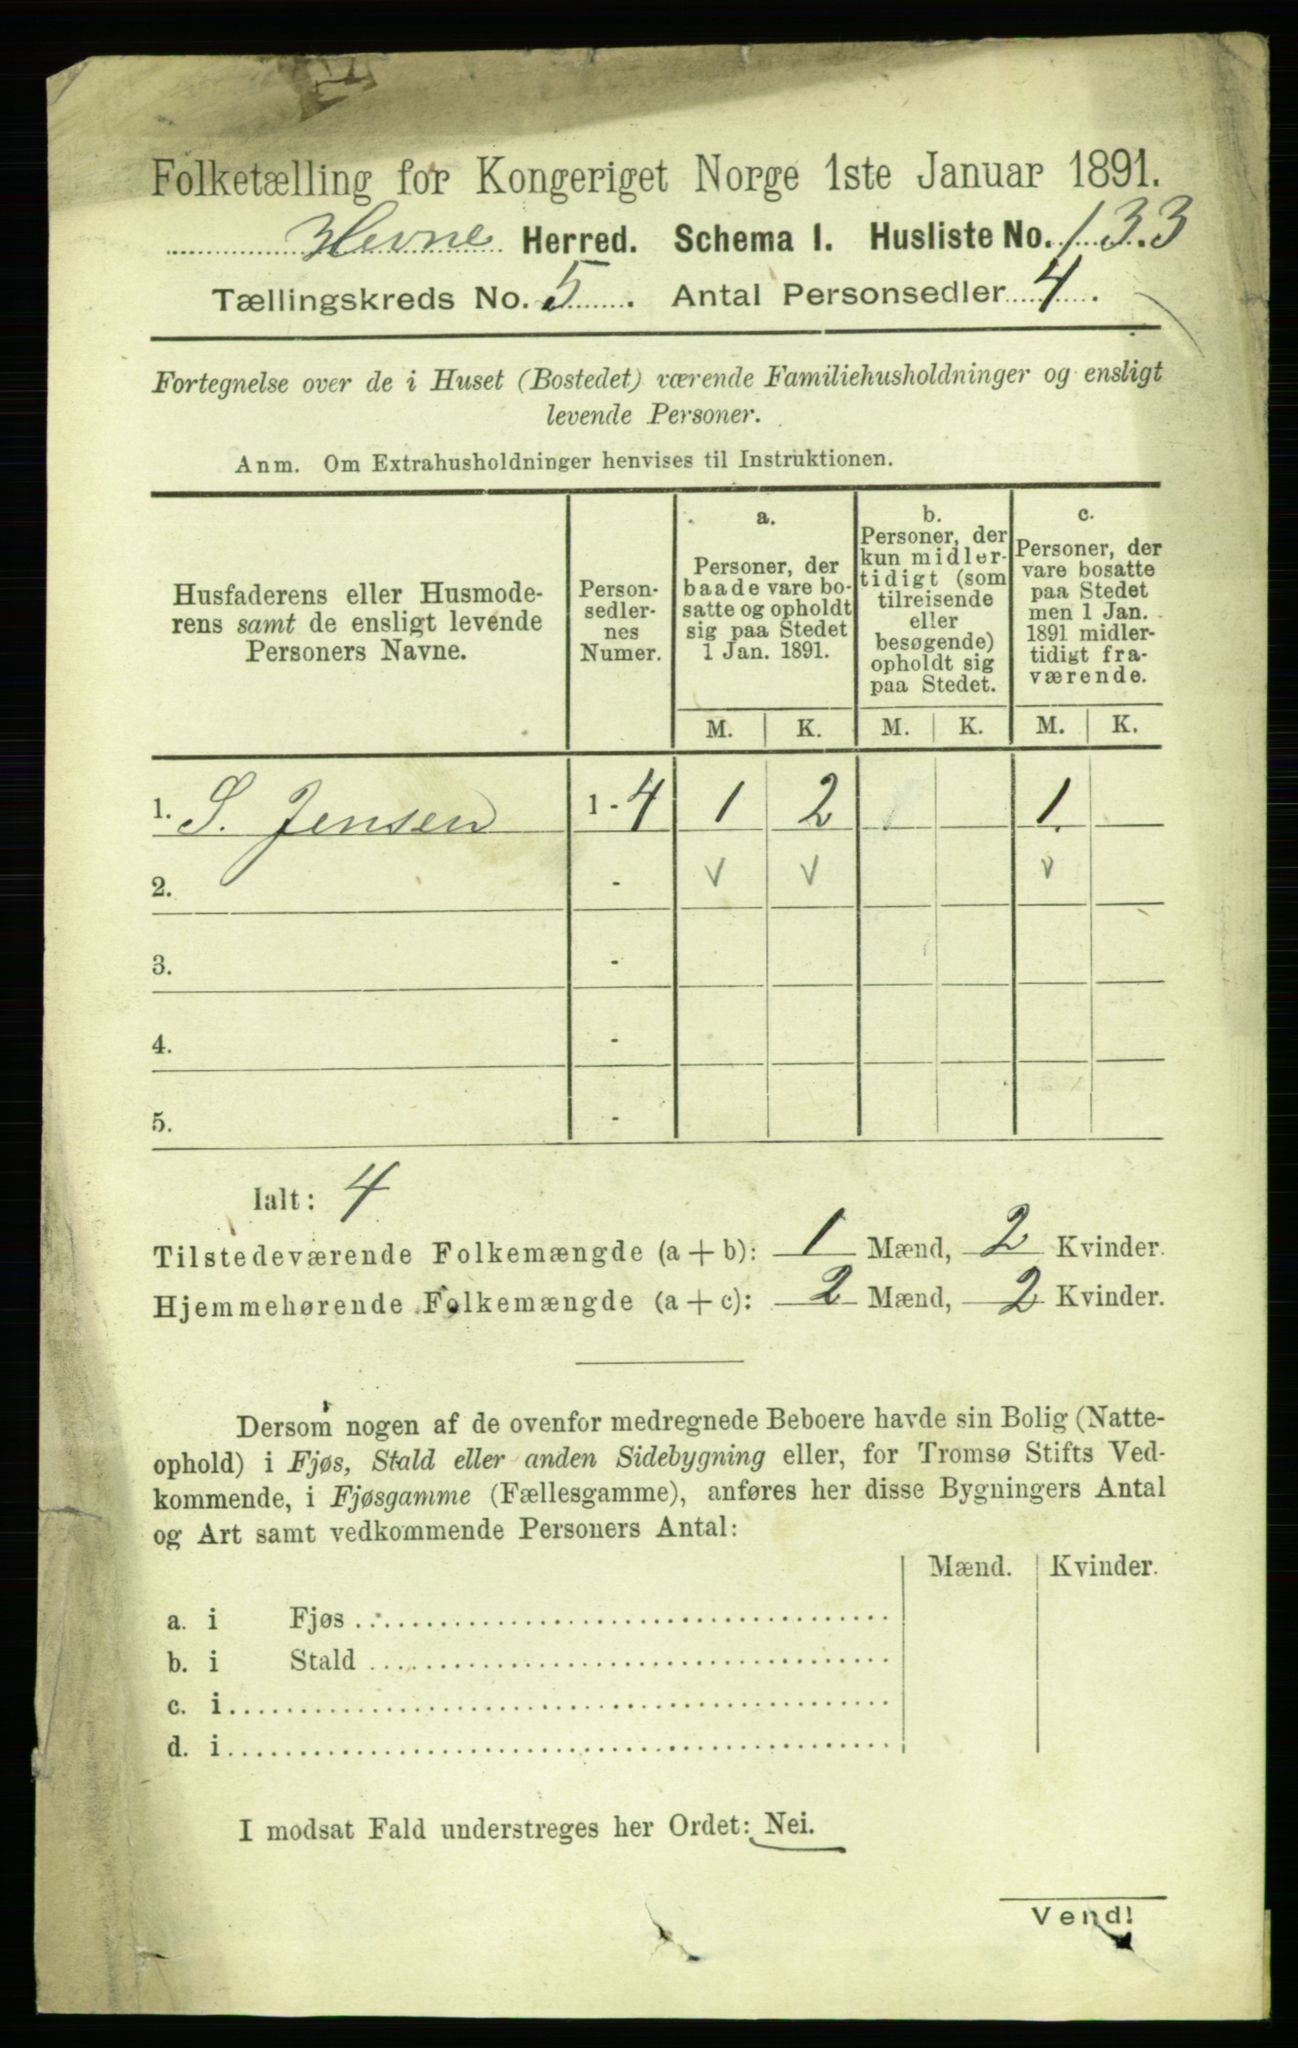 Folketælling for Kongeriget Norge 1ste Januar 1891.
Hevne Herred. Schema I. Husliste No. 133
Tællingskreds No. 5. Antal Personsedler 4.
Fortegnelse over de i Huset (Bostedet) værende Familiehusholdninger og ensligt
levende Personer.
Anm. Om Extrahusholdninger henvises til Instruktionen.
Husfaderens eller Husmode-
rens samt de ensligt levende
Personers Navne.
Person-
sedler-
nes
Numer.
a.
Personer, der
baade vare bo-
satte og opholdt
sig paa Stedet
1 Jan. 1891.
b.
Personer, der
kun midler-
tidigt (som
tilreisende
eller
besøgende)
opholdt sig
paa Stedet.
c.
Personer, der
vare bosatte
paa Stedet
men 1 Jan.
1891 midler-
tidigt fra-
værende.
M. K. M. K. M. K.
1. S. Jensen 1 - 4 1 2 1
2. - v v v
3. -
4. -
5. -
Ialt: 4
Tilstedeværende Folkemængde (a + b): 1 Mænd, 2 Kvinder.
Hjemmehørende Folkemængde (a + c): 2 Mænd, 2 Kvinder.
Dersom nogen af de ovenfor medregnede Beboere havde sin Bolig (Natte-
ophold) i Fjøs, Stald eller anden Sidebygning eller, for Tromsø Stifts Ved-
kommende, i Fjøsgamme (Fællesgamme), anføres her disse Bygningers Antal
og Art samt vedkommende Personers Antal:
Mænd. Kvinder.
a. i Fjøs
b. i Stald
c. i
d. i
I modsat Fald understreges her Ordet: Nei.
Vend!